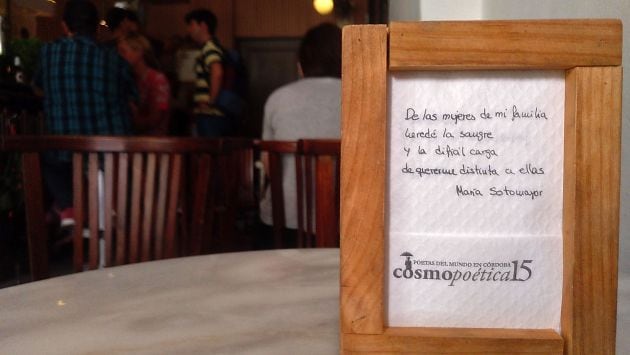 De las mujeres de mi familia
heredé la sangre
y la difícil carga
de quererme distinta a ellas
María Sotomayor
POETAS DEL MUNDO EN CÓRDOBA
cosmopoética15